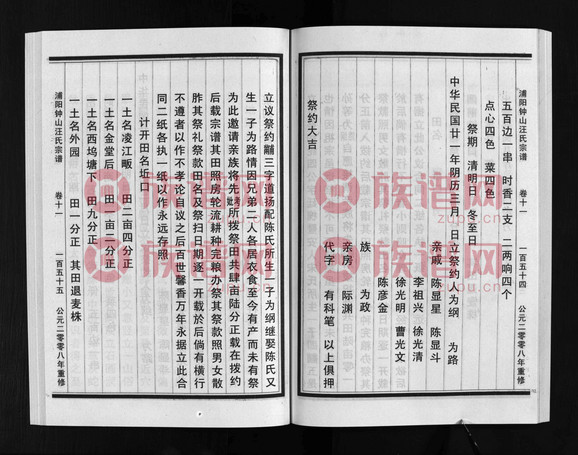 浦阳钟山汪氏宗谱 卷十一 一百五十四 公元二零零八年重修
五百边一串 时香二支 二两响四个
点心四色 菜四色
祭期 清明日 冬至日
中华民国廿一年阴历三月 日立祭约人为纲 为路
亲戚 陈显星 陈显斗
李祖兴 徐光清
徐光明 曹光文
陈彦金
族 为政
亲房 际渊
代字 有科笔 以上俱押
祭约大吉
立议祭约黼三字道扬配陈氏所生一子为纲继娶陈氏又
生一子为路情因兄弟二人各居衣食至今有产而未有祭
为此邀请亲族将先批考所拨祭田共肆亩陆分正载在拨约
后载宗谱其田照房轮流耕种完粮办祭其祭款照男女散
胙其祭礼祭款田名及祭扫期逐一开载於后倘有横行
不遵者以作不孝论自议之后百世馨香万年永据立此合
同二纸各执一纸以作永远存照
计开田名坵口
一土名凌江畈 田二亩四分正
一土名金堂后 田一亩二分正
一土名西坞塘下 田九分正
一土名外园 田一分正 其田退麦株
浦阳钟山汪氏宗谱 卷十一 一百五十五 公元二零零八年重修
族谱网
zupu.cn
族谱网
zupu.cn